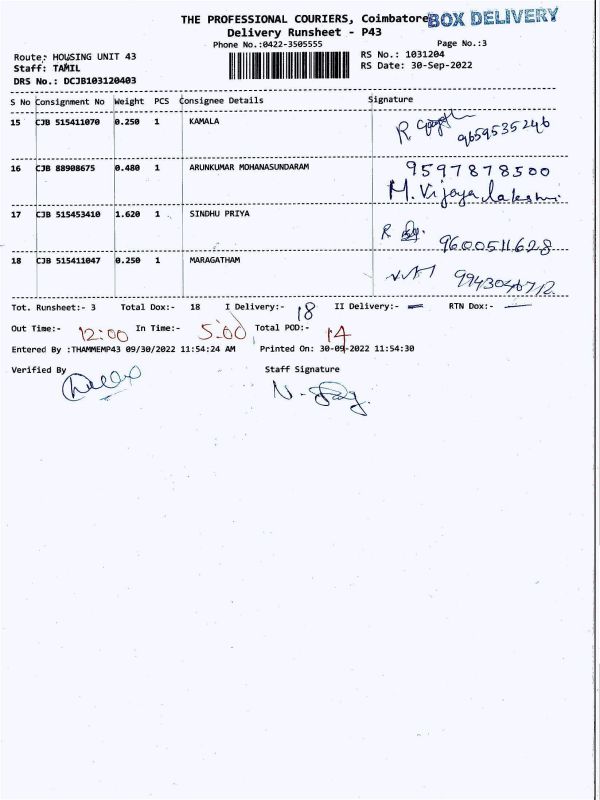 THE PROFESSIONAL COURIERS, Coimbatore BOX DELIVERY
Delivery Runsheet - P43
Phone No.:0422-3505555 Page No.:3
Route: HOUSING UNIT 43 RS No.: 1031204
Staff: TAMIL RS Date: 30-Sep-2022
DRS No.: DCJB103120403
S No Consignment No Weight PCS Consignee Details Signature
15 CJB 515411070 0.250 1 KAMALA R
9659535246
16 CJB 88908675 0.480 1 ARUNKUMAR MOHANASUNDARAM 9597878500
M. Vijayalakshmi
17 CJB 515453410 1.620 1 SINDHU PRIYA
R 9600511628
18 CJB 515411047 0.250 1 MARAGATHAM
Tot. Runsheet:- 3 Total Dox:- 18 I Delivery:- 18 II Delivery:- — RTN Dox:- —
Out Time:- 12:00 In Time:- 5:00 Total POD:- 14
Entered By :THAMMEMP43 09/30/2022 11:54:24 AM Printed On: 30-09-2022 11:54:30
Verified By Staff Signature